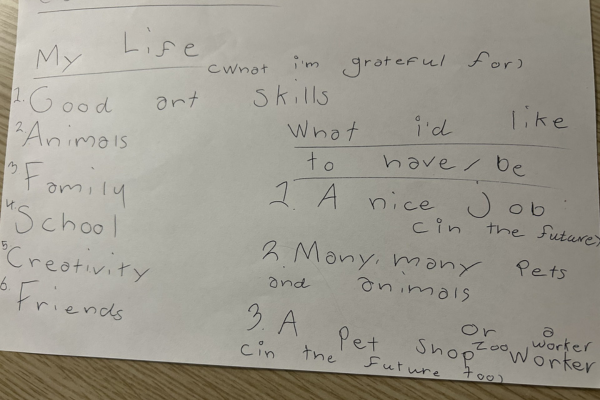 My Life (What i'm grateful for)
1. Good art Skills
2. Animals
3 Family
4. School
5 Creativity
6. Friends
What i'd like
to have/be
1. A nice Job
(in the future)
2. Many, many Pets
and animals
3. A Pet Shop worker
Or a Zoo Worker
(in the future too)